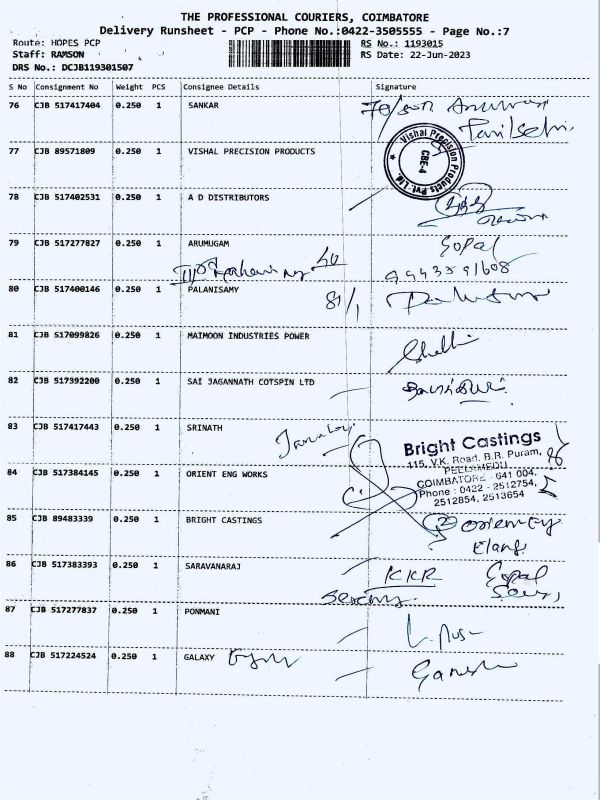 THE PROFESSIONAL COURIERS, COIMBATORE
Delivery Runsheet - PCP - Phone No.:0422-3505555 - Page No.:7
Route: HOPES PCP
RS No.: 1193015
Staff: RAMSON
RS Date: 22-Jun-2023
DRS No.: DCJB119301507
S No Consignment No Weight PCS Consignee Details Signature
76 CJB 517417404 0.250 1 SANKAR
77 CJB 89571809 0.250 1 VISHAL PRECISION PRODUCTS
Vishal Precision Products Pvt. Ltd.
CBE-4
78 CJB 517402531 0.250 1 A D DISTRIBUTORS
79 CJB 517277827 0.250 1 ARUMUGAM
Gopal
80 CJB 517400146 0.250 1 PALANISAMY
81/1
81 CJB 517099826 0.250 1 MAIMOON INDUSTRIES POWER
82 CJB 517392200 0.250 1 SAI JAGANNATH COTSPIN LTD
83 CJB 517417443 0.250 1 SRINATH
Bright Castings
115, V.K. Road, B.R. Puram,
PEELAMEDU
COIMBATORE - 641 004.
Phone : 0422 - 2512754,
2512854, 2513654
84 CJB 517384145 0.250 1 ORIENT ENG WORKS
85 CJB 89483339 0.250 1 BRIGHT CASTINGS
86 CJB 517383393 0.250 1 SARAVANARAJ
KKR
Gopal
87 CJB 517277837 0.250 1 PONMANI
88 CJB 517224524 0.250 1 GALAXY
Ganesh